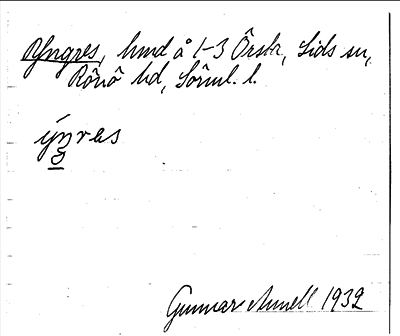 Yngres, hmd å 1-3 Örsta, Lids sn,
Rönö hd, Sörml. l.
ýŋres
3
Gunnar Linnell 1932